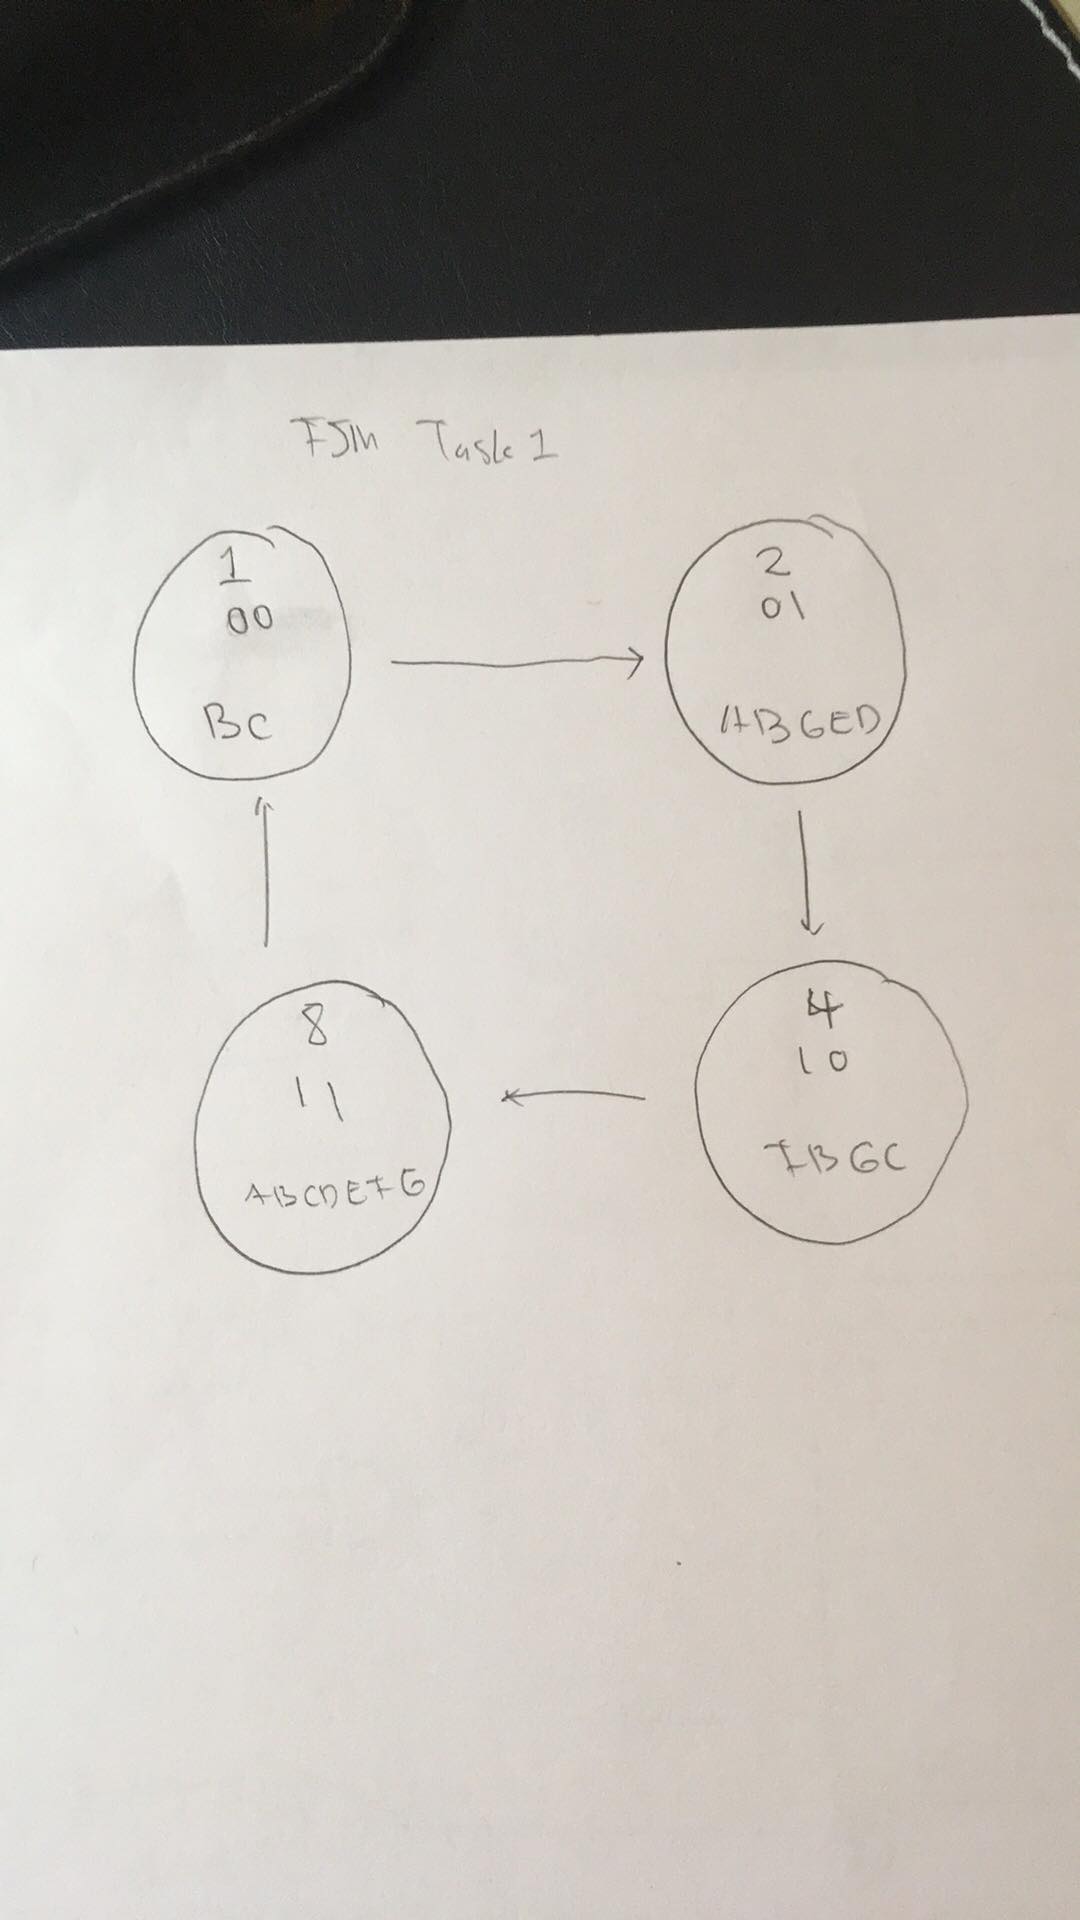 FSM Task 1
1
00
BC
2
01
ABGED
4
10
FBGC
8
11
ABCDEFG